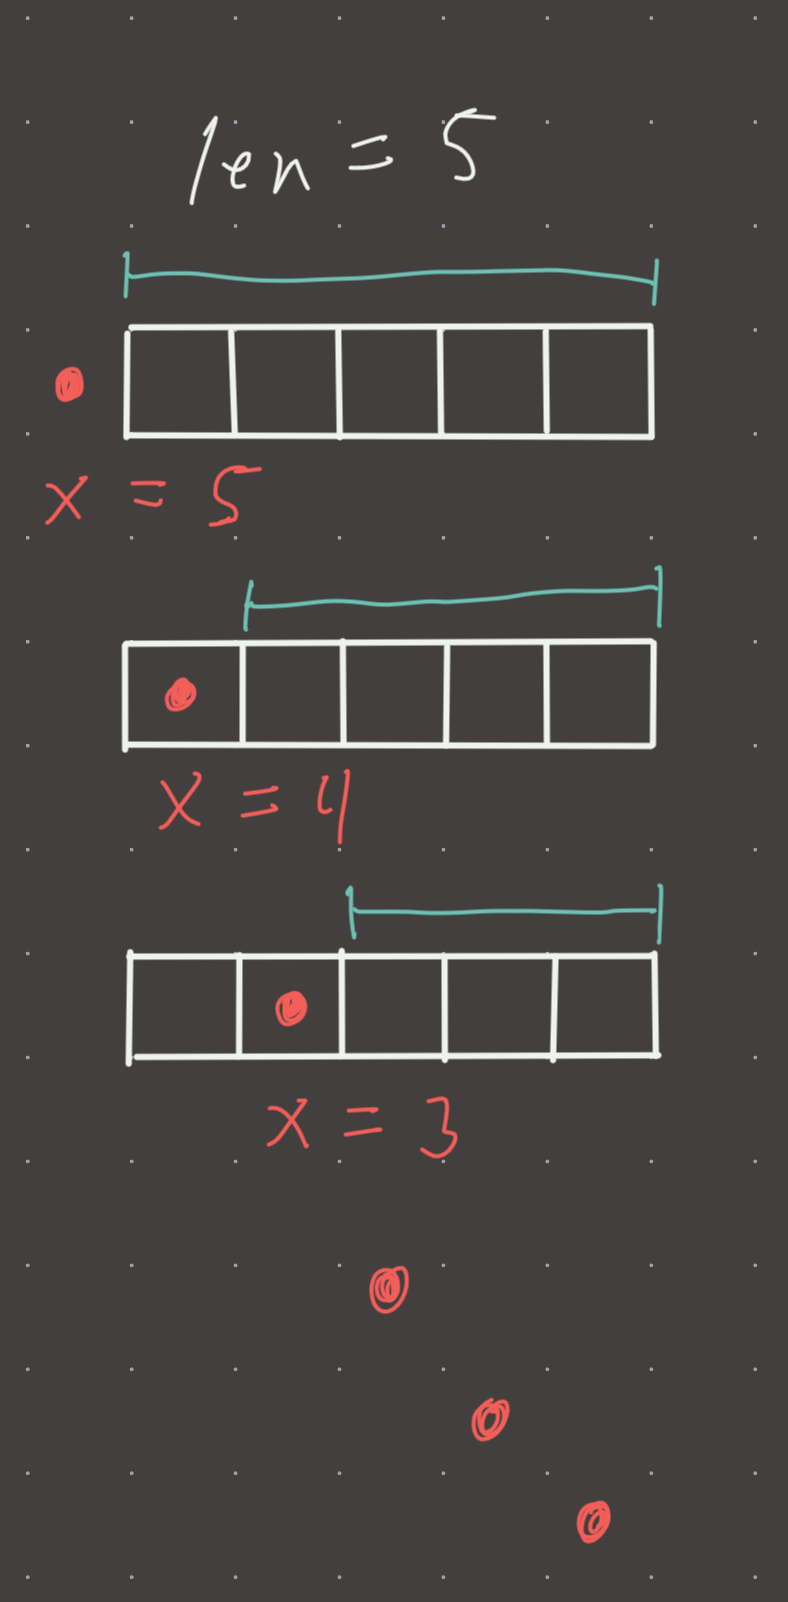 len = 5
x = 5
x = 4
x = 3